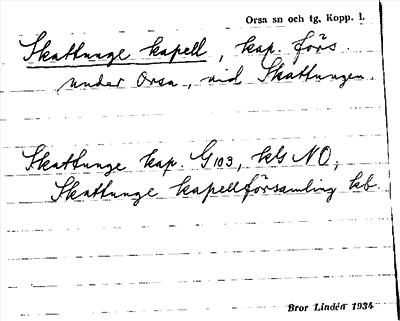 Orsa sn och tg, Kopp. l.
Skattunge kapell, kap. förs.
under Orsa, vid Skattungen.
Skattunge kap. G103, kls NO;
Skattunge kapellförsamling kb
Bror Lindén 1934